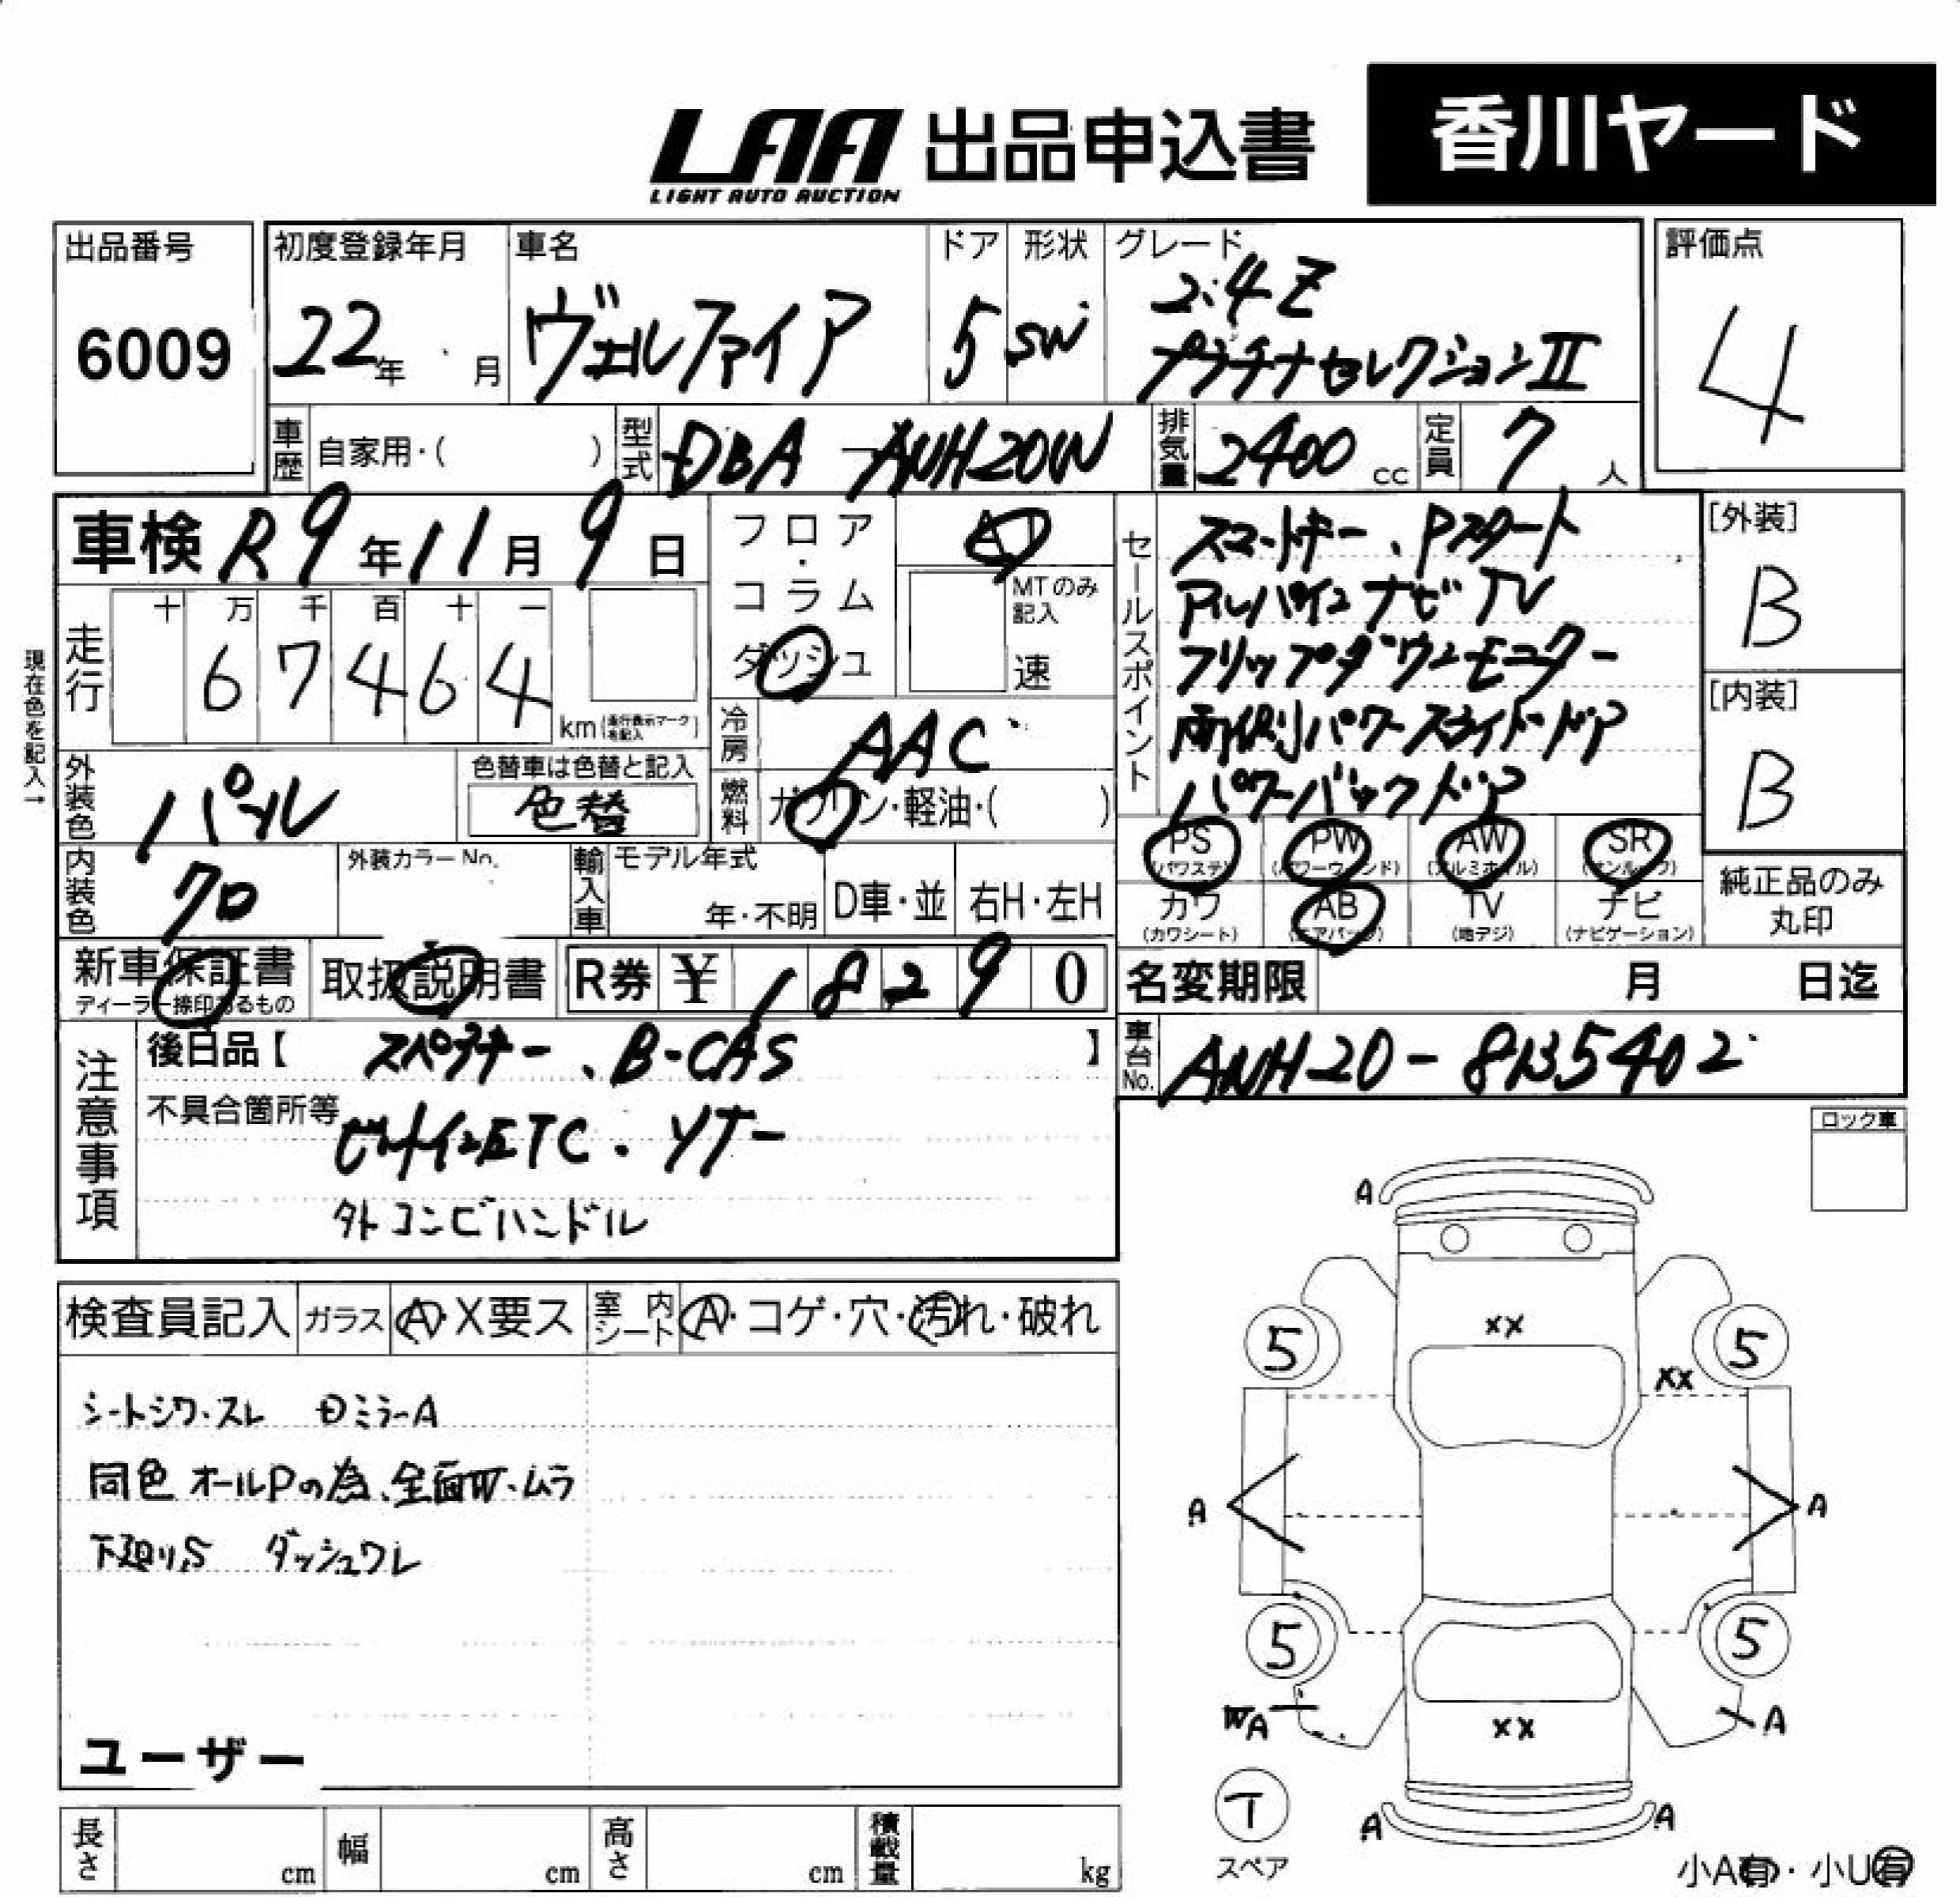 LAA 出品申込書 香川ヤード
LIGHT AUTO AUCTION
出品番号 初度登録年月 車名 ドア 形状 グレード 評価点
6009 22年 月 ヴェルファイア 5 SW 2.4Z
プラチナセレクションII 4
車歴 自家用・( ) 型式 DBA-ANH20W 排気量 2400 cc 定員 7 人
車検 R9年11月9日 フロア・コラム ダッシュ AT
MTのみ記入 速
現在色を記入→
走行 十 万 千 百 十 一
6 7 4 6 4 km (走行表示マークを記入)
冷房 AAC
外装色 パール 色替車は色替と記入
色替
燃料 ガソリン・軽油・( )
内装色 クロ 外装カラーNo. 輸入車 モデル年式 年・不明 D車・並 右H・左H
セールスポイント スマートキー、Pスタート
アルパインナビTV
フリップダウンモニター
両側パワースライドドア
パワーバックドア
[外装] B
[内装] B
PS (パワステ) PW (パワーウィンド) AW (アルミホイル) SR (サンルーフ)
カワ (カワシート) AB (エアバッグ) TV (地デジ) ナビ (ナビゲーション)
純正品のみ丸印
新車保証書 取扱説明書 R券 ¥ 1 8 2 9 0
ディーラー捺印あるもの
名変期限 月 日迄
車台No. ANH20-8135402
注意事項 後日品【 スペアキー、B-CAS 】
不具合箇所等 ビルトインETC・
外 コンビハンドル
ロック車
検査員記入 ガラス A・X要ス 室内シート A・コゲ・穴・汚れ・破れ
シートシワ・スレ ミラーA
同色オールPの為、全面W・ムラ
下廻りS ダッシュワレ
ユーザー
A
XX
5 5
XX
A A
5 5
WA A
XX
T
A A
スペア
小A有・小U有
長さ cm 幅 cm 高さ cm 積載量 kg